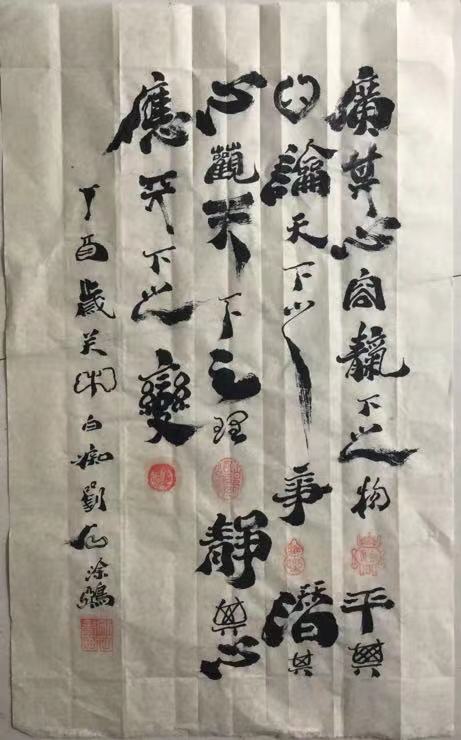 廣其心容靝下之物平其
心論天下之事潛其
心觀天下之理靜其心
應天下之變
丁酉歲白痴劉涂鴉